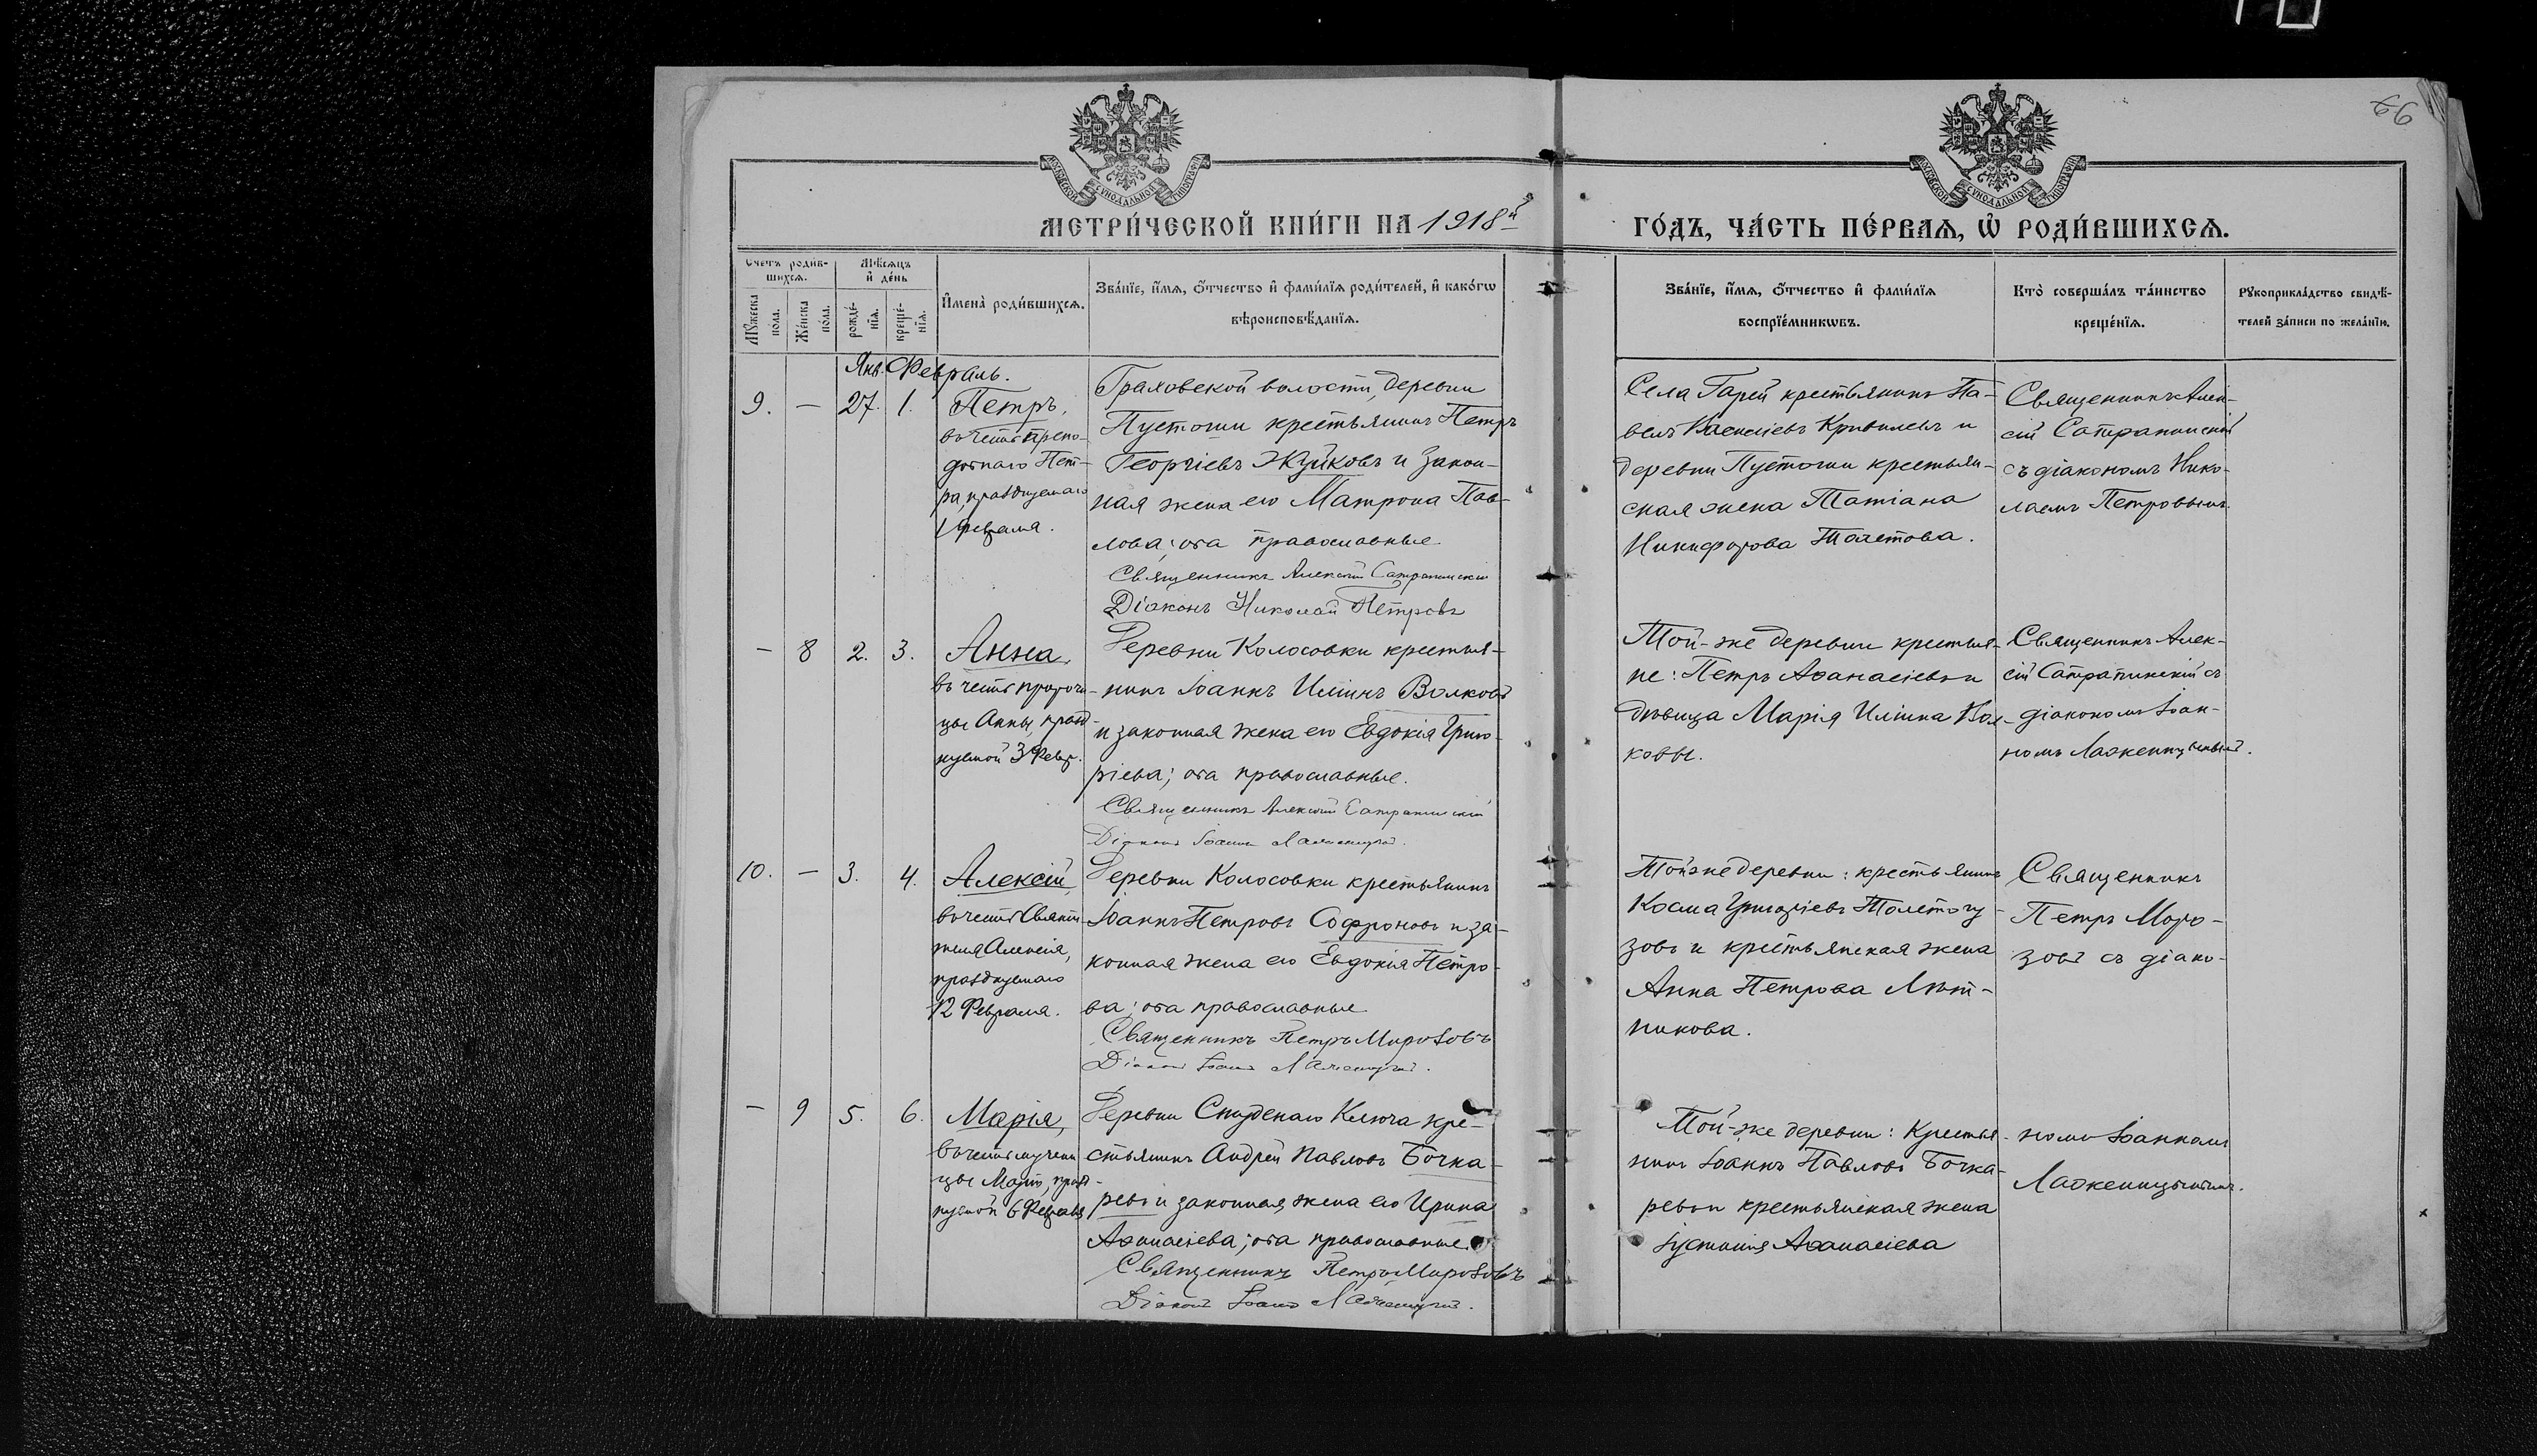 66
МОСКОВСКОЙ СУНОДАЛЬНОЙ ТИПОГРАФІИ
МОСКОВСКОЙ СУНОДАЛЬНОЙ ТИПОГРАФІИ
МЕТРИ́ЧЕСКОЙ КНИ́ГИ НА 1918й
ГО́ДЪ, ЧА́СТЬ ПЕ́РВАѦ, Ѽ РОДИ́ВШИХСѦ.
Счетъ роди́в-
шихсѧ.
Мꙋ́жеска
по́ла.
Же́нска
по́ла.
Мѣ́сѧцъ
и҆ де́нь
рожде́-
нїѧ.
креще́-
нїѧ.
И҆мена̀ роди́вшихсѧ.
Зва́нїе, и҆́мѧ, о҆́тчество и҆ фами́лїѧ роди́телей, и҆ како́гѡ
вѣроисповѣ́данїѧ.
Зва́нїе, и҆́мѧ, о҆́тчество и҆ фами́лїѧ
воспрїе́мникѡвъ.
Кто̀ соверша́лъ та́инство
креще́нїѧ.
Рꙋкоприкла́дство свидѣ́-
телей за́писи по жела́нїю.
Янв. Февраль.
9. — 27. 1. Петръ,
въ честь препо-
добнаго Пет-
ра, празднуемаго
1 Февраля.
Граховской волости, деревни
Пустоши крестьянинъ Петръ
Георгіевъ Жуйковъ и закон-
ная жена его Матрона Пав-
лова; оба православные
Священникъ Алексій Сатрапинскій
Діаконъ Николай Петровъ
Села Гарей крестьянинъ Па-
велъ Васильевъ Кривилевъ и
деревни Пустоши крестьян-
ская жена Татіана
Никифорова Толстова.
Священникъ Алек-
сій Сатрапинскій
съ діакономъ Нико-
лаемъ Петровымъ.
— 8 2. 3. Анна,
въ честь пророчи-
цы Анны, празд-
нуемой 3 Февр.
Деревни Колосовки крестья-
нинъ Іоаннъ Иліинъ Волковъ
и законная жена его Евдокія Григо-
ріева; оба православные.
Священникъ Алексій Сатрапинскій
Діаконъ Іоаннъ
Той-же деревни крестья-
не: Петръ Аѳанасіевъ и
дѣвица Марія Иліина Вол-
ковы.
Священникъ Алек-
сій Сатрапинскій съ
діакономъ Іоан-
номъ
10. — 3. 4. Алексій,
въ честь Святи-
теля Алексія,
празднуемаго
12 Февраля.
Деревни Колосовки крестьянинъ
Іоаннъ Петровъ Софроновъ и за-
конная жена его Евдокія Петро-
ва; оба православные
Священникъ Петръ Морозовъ
Діаконъ Іоаннъ
Той же деревни: крестьянинъ
Косма Григоріевъ Толстогу-
зовъ и крестьянская жена
Анна Петрова Лют-
никова.
Священникъ
Петръ Моро-
зовъ съ діако-
— 9 5. 6. Марія,
въ честь мучени-
цы Маріи, празд-
нуемой 6 Февраля
Деревни Студенаго Ключа кре-
стьянинъ Андрей Павловъ Бочка-
ревъ и законная жена его Ирина
Аѳанасіева; оба православные.
Священникъ Петръ Морозовъ
Діаконъ Іоаннъ
Той-же деревни: Крестья-
нинъ Іоаннъ Павловъ Бочка-
ревъ и крестьянская жена
Іустинія Аѳанасіева
номъ Іоанномъ